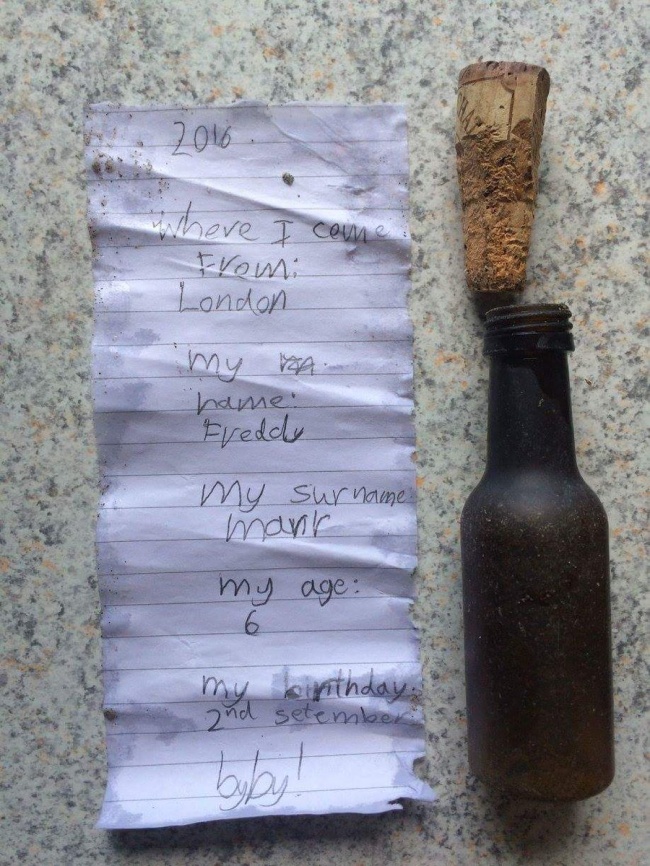 2016
Where I come
From:
London
my
name:
Freddy
My surname
marr
my age:
6
my birthday
2nd setember
byby!